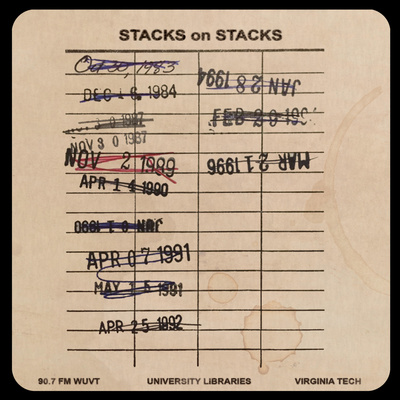 STACKS on STACKS
Oct 30, 1983
DEC 16 1984
NOV 30 1987
NOV 2 1989
APR 14 1990
JUN 01 1990
APR 07 1991
MAY 15 1991
APR 25 1992
JAN 28 1994
FEB 29
MAR 21 1996
90.7 FM WUVT
UNIVERSITY LIBRARIES
VIRGINIA TECH